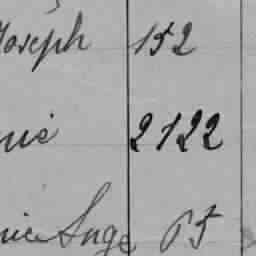 Joseph 152
nie 2122
nie Ange 65